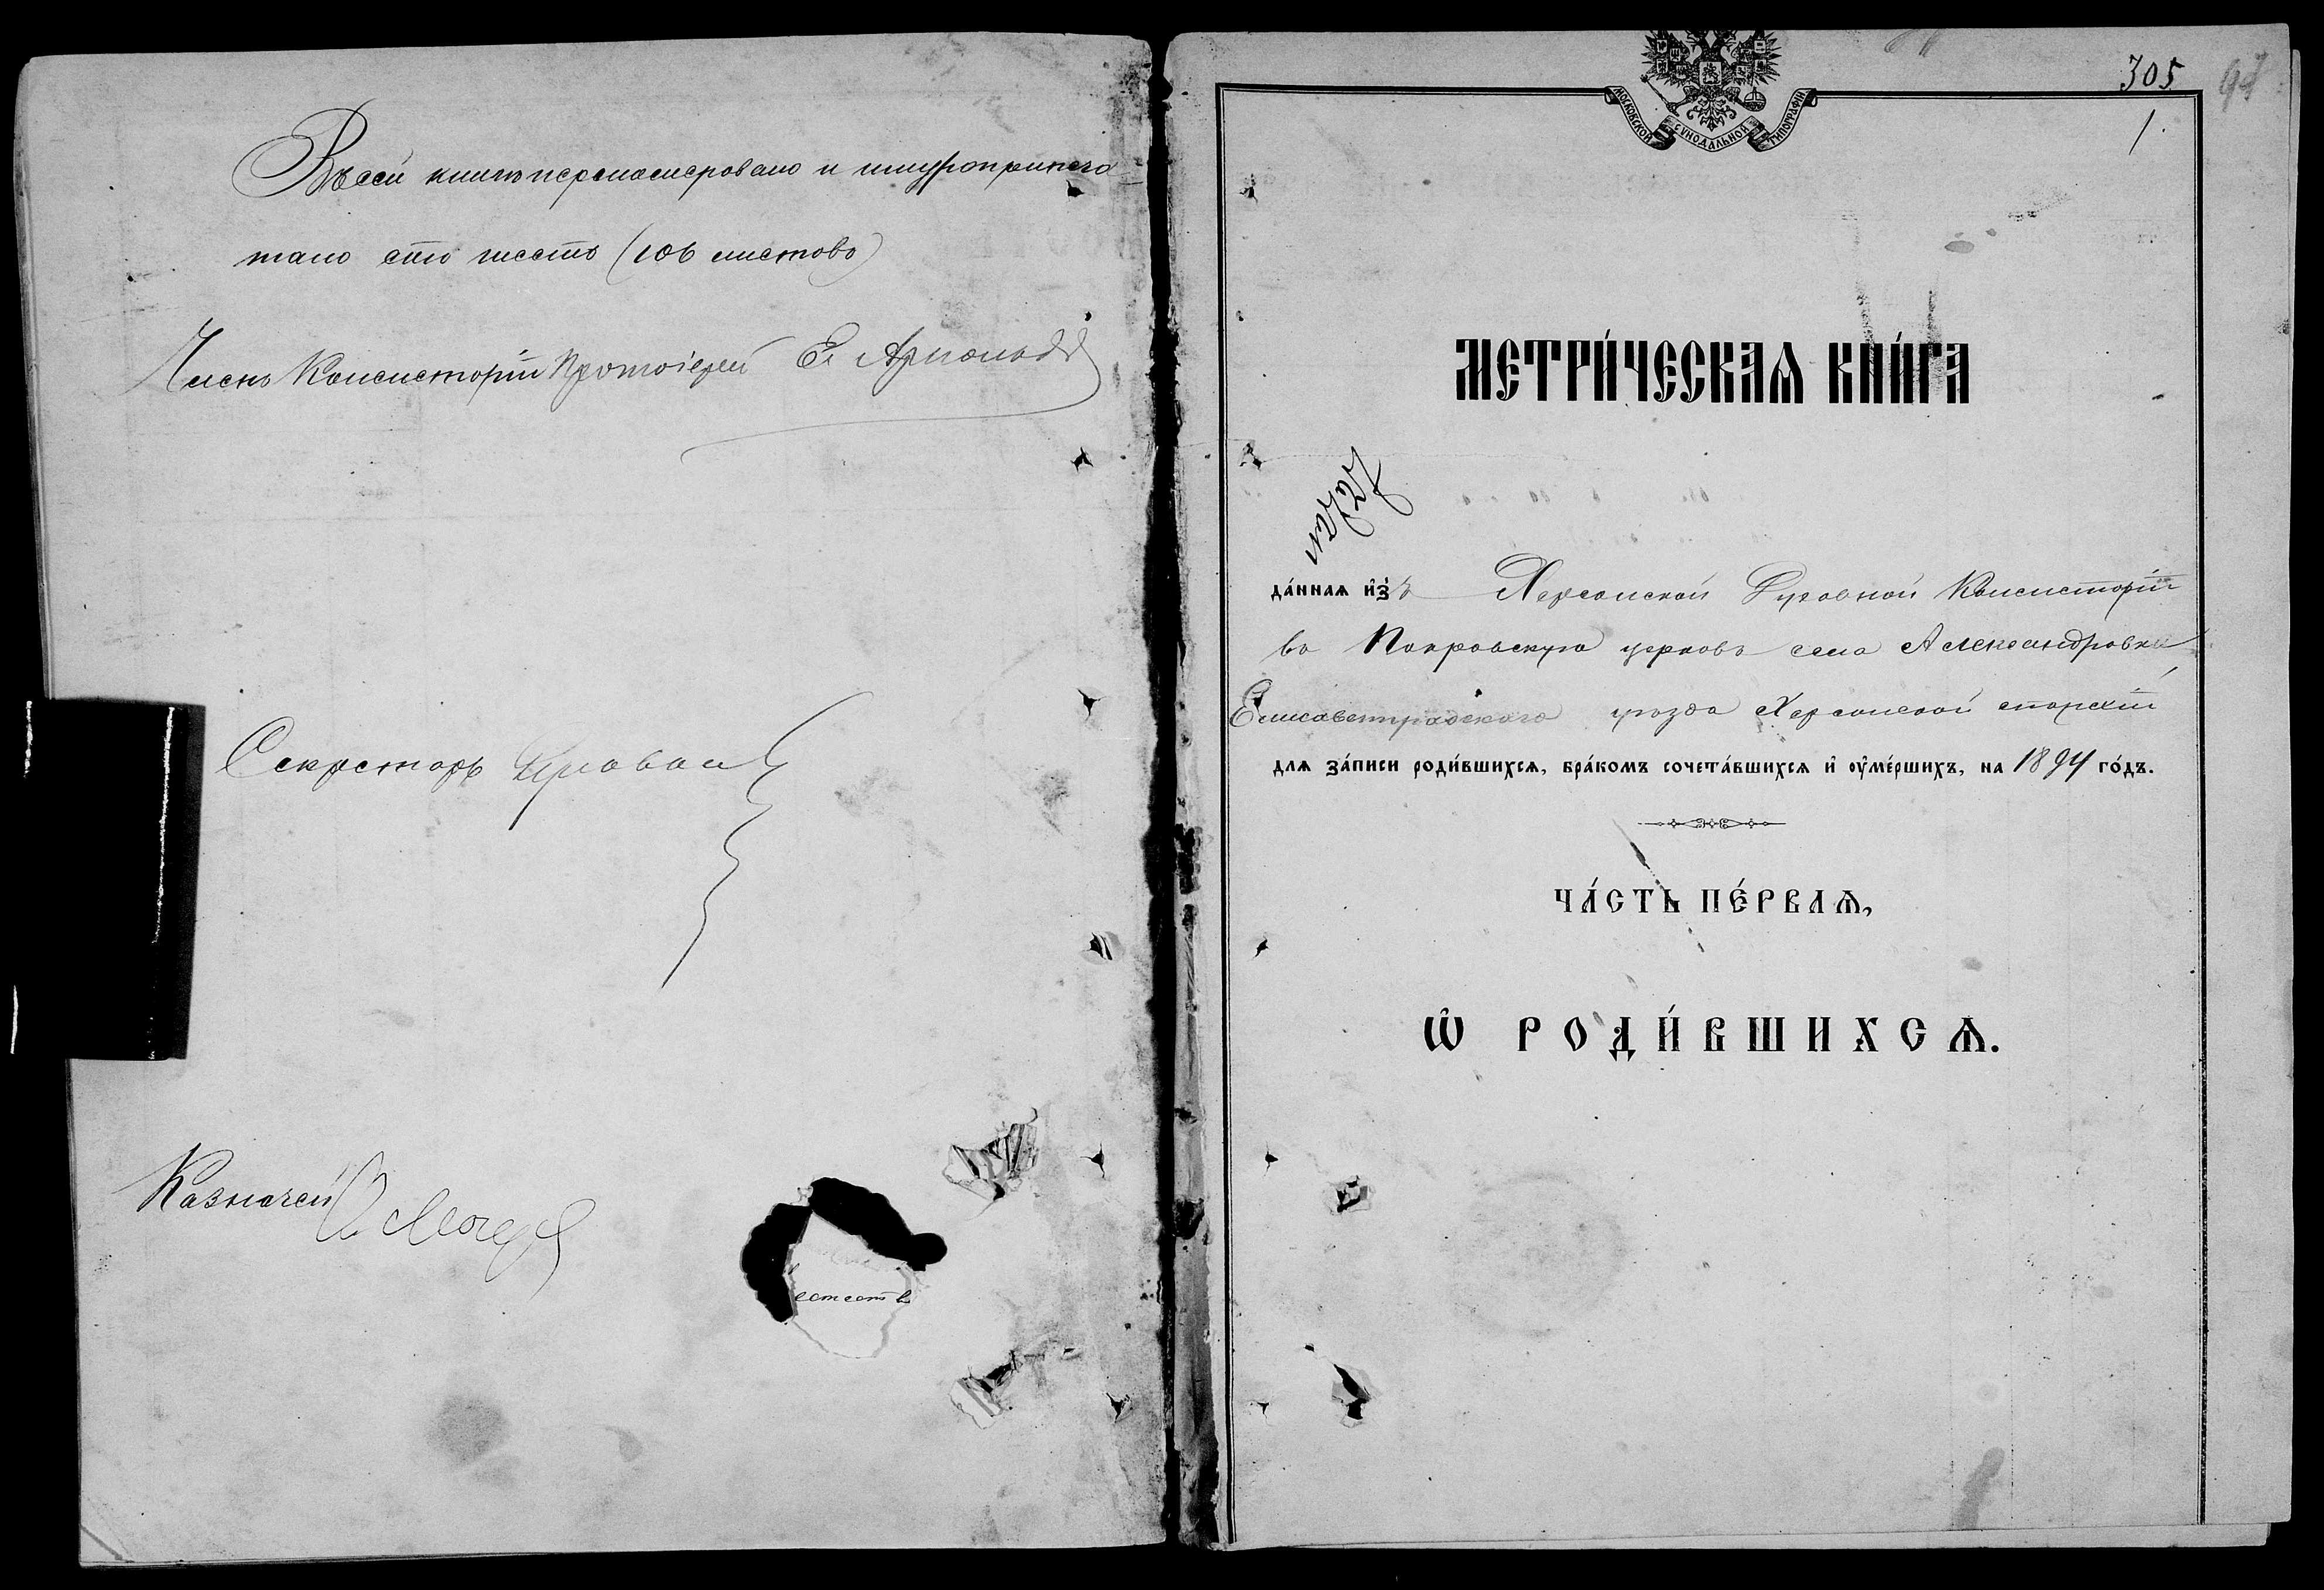 Въ сей книгѣ перенумеровано и шнуроприпеча-
тано сто шесть (106 листовъ)
Членъ Консисторіи Протоіерей Е. Арнольдъ
Секретарь
Казначей
305
1.
МОСКОВСКОЙ СѴНОДАЛЬНОЙ ТИПОГРАФІИ
МЕТРИ́ЧЕСКАѦ КНИ́ГА
да́ннаѧ и҆зъ Херсонской Духовной Консисторіи
въ Покровскую церковь села Александровки
Елисаветградскаго уѣзда Херсонской епархіи
для за́писи роди́вшихсѧ, бра́комъ сочета́вшихсѧ и҆ ѹ҆ме́ршихъ, на 1894 го́дъ.
ЧА́СТЬ ПЕ́РВАѦ,
Ѡ҆ РОДИ́ВШИХСѦ.